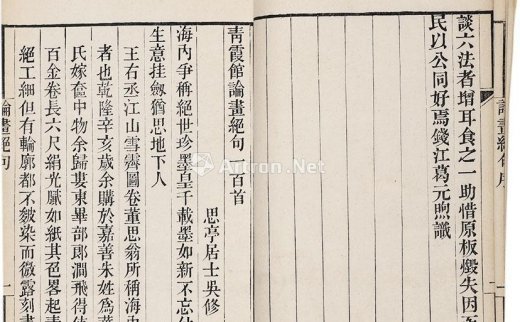 論畫絕句序
談六法者增耳食之一助惜原板燬失因
民以公同好焉錢江葛元煦識
青霞館論畫絕句一百首
思亭居士吳修
海內爭稱絕世珍墨皇千載墨如新不忘
生意挂劔猶思地下人
王右丞江山雪霽圖卷董思翁所稱海
者也乾隆辛亥歲余購於嘉善朱姓爲
氏嫁奩中物余歸婁東畢部郎澗飛得
百金卷長六尺絹光膩如紙其色畧起
絕工細但有輪廓都不皴染而微露刻
論畫絕句
一
Artron.Net